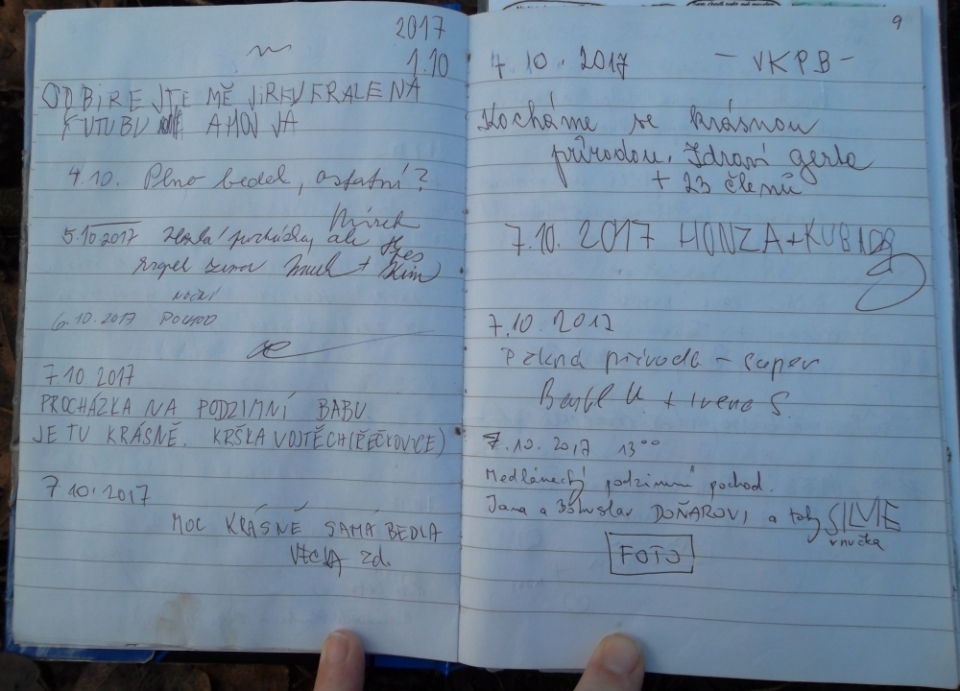 2017
1.10
ODBIREJTE MĚ JIREV KRALENA
KUTUBU AHOJ JÁ
4.10. Plno bedel, ostatní?
Mírek
5.10.2017 procházka, ale
+ Kim
NOČNÍ
6.10.2017 POCHOD
7.10 2017
PROCHÁZKA NA PODZIMNÍ BABU
JE TU KRÁSNĚ. KRŠKA VOJTĚCH (ŘEČKOVICE)
7 10.2017
MOC KRÁSNĚ SAMÁ BEDLA
zd.
9
4 10. 2017 - VKPB -
Kocháme se krásnou
přírodou. Zdraví gerla
+ 23 členů
7.10. 2017 HONZA + KUBA
7.10. 2017
Pekná příroda - super
+ Irena S.
7.10. 2017 13⁰⁰
Medlánecký podzimní pochod.
Jana a Bohuslav DOŇAROVI, a taky SILVIE
vnučka
FOTO